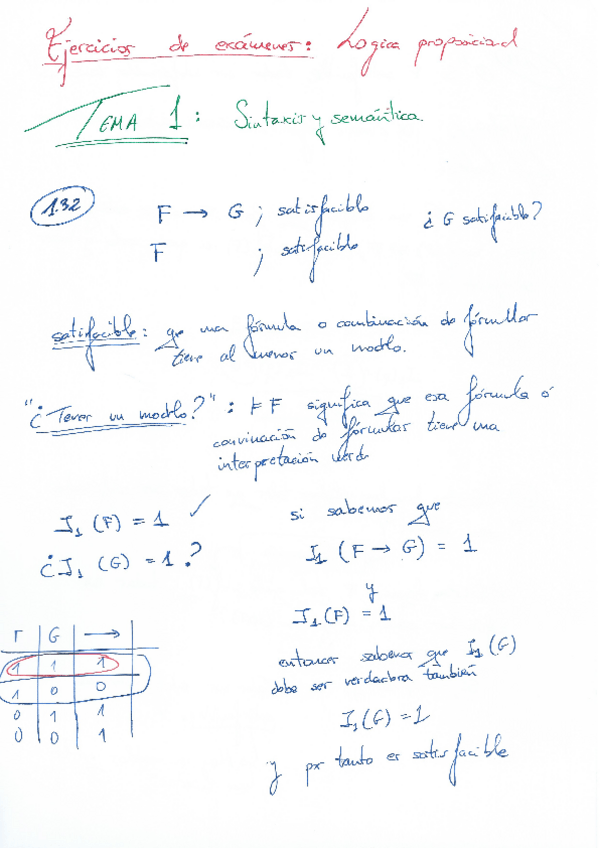 Ejercicios de exámenes: Logica proposicional
TEMA 1: Sintaxis y semántica.
1.32
F → G ; satisfacible ¿ G satisfacible?
F ; satisfacible
satisfacible: que una fórmula o combinación de fórmulas
tiene al menos un modelo.
"¿Tener un modelo?": ⊧ F significa que esa fórmula ó
convinación de fórmulas tiene una
interpretación verde
I₁ (F) = 1 ✓
¿I₁ (G) = 1?
si sabemos que
I₁ (F → G) = 1
y
I₁ (F) = 1
entonces sabemos que I₁ (G)
debe ser verdadera también
I₁ (G) = 1
y por tanto es satisfacible
F G →
1 1 1
1 0 0
0 1 1
0 0 1